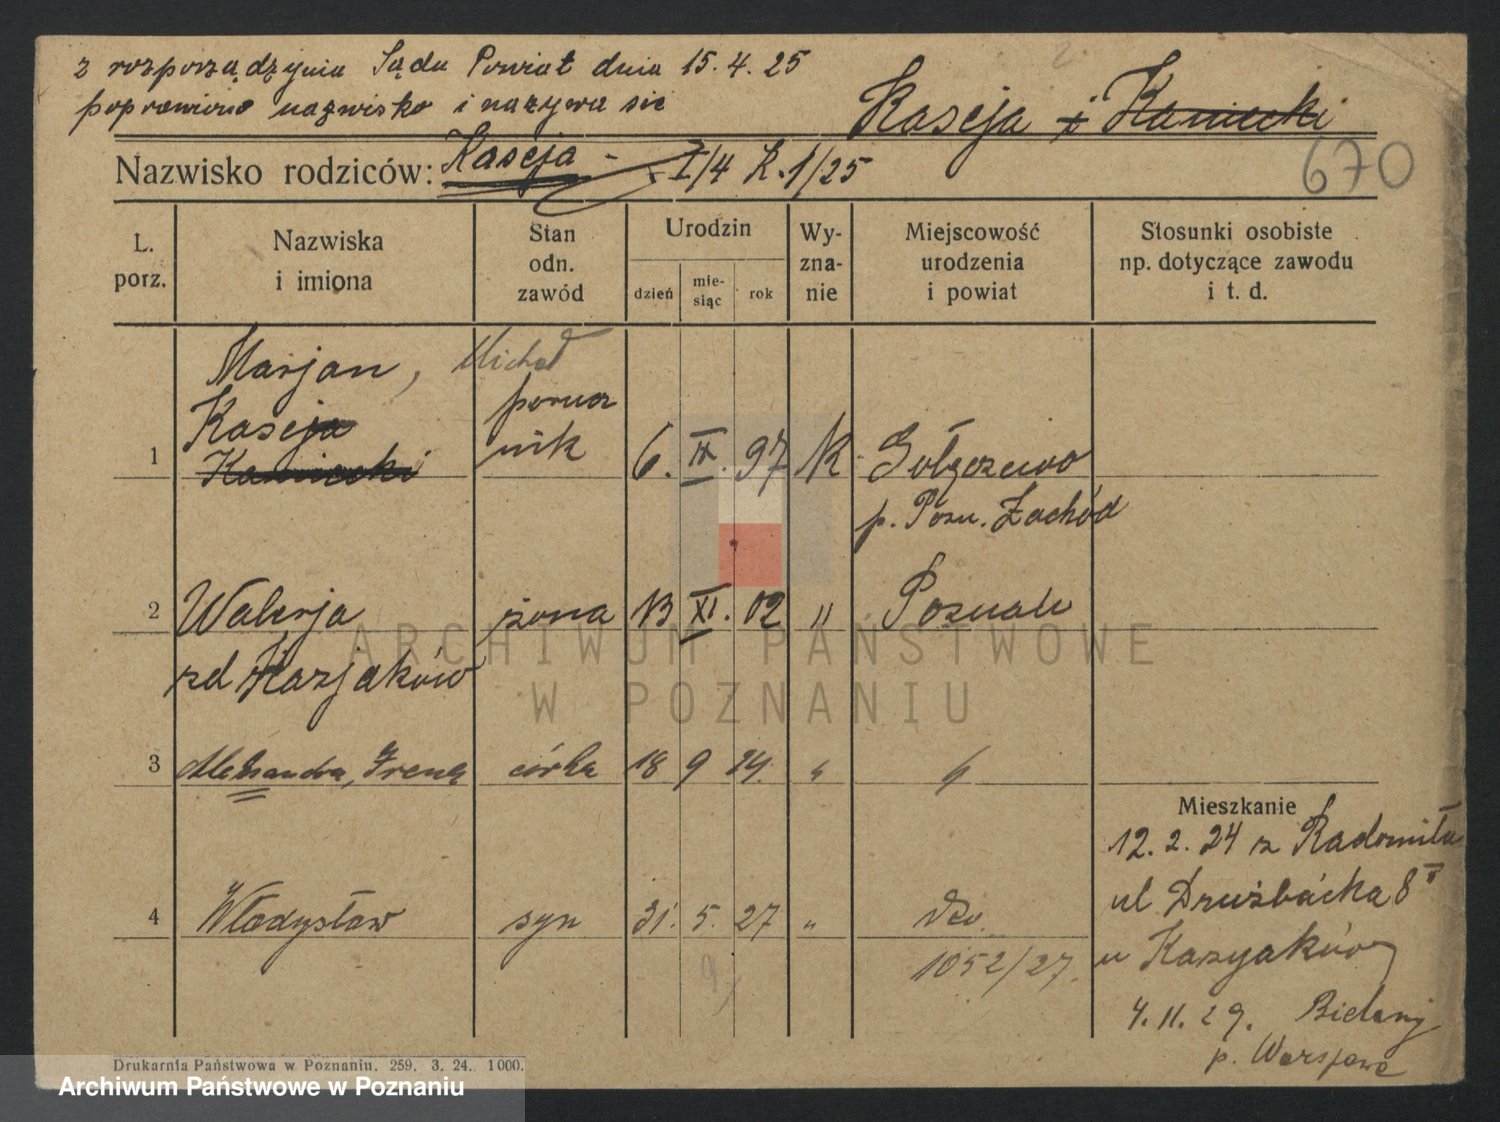 z rozporządzynia Sądu Powiat dnia 15.4.25
poprawiono nazwisko i nazywa się
Kaseja i Kaniecki
Nazwisko rodziców: Kaseja - I/4 K. 1/25
670
L. porz.
Nazwiska i imiona
Stan odn. zawód
Urodzin
dzień
mie- siąc
rok
Wy- zna- nie
Miejscowość urodzenia i powiat
Stosunki osobiste np. dotyczące zawodu i t. d.
Marjan, Michał
porucz
Kaseja
nik
1 Kaniecki 6. IX. 97 K
p. Pozn. Zachód
2 Walerja żona 13 XI. 02 " Poznań
zd Kazjaków
3 Aleksandra, Irena córka 18 9 24. "
Mieszkanie
12. 2. 24 z Radomiła
ul Drużbacka 8
4 Władysław syn 31. 5. 27 " dto.
u Kazyaków
1052/27.
4. 11. 29. Bielany
p. Warszawa
ARCHIWUM PAŃSTWOWE
W POZNANIU
Drukarnia Państwowa w Poznaniu. 259. 3. 24. 1000.
Archiwum Państwowe w Poznaniu